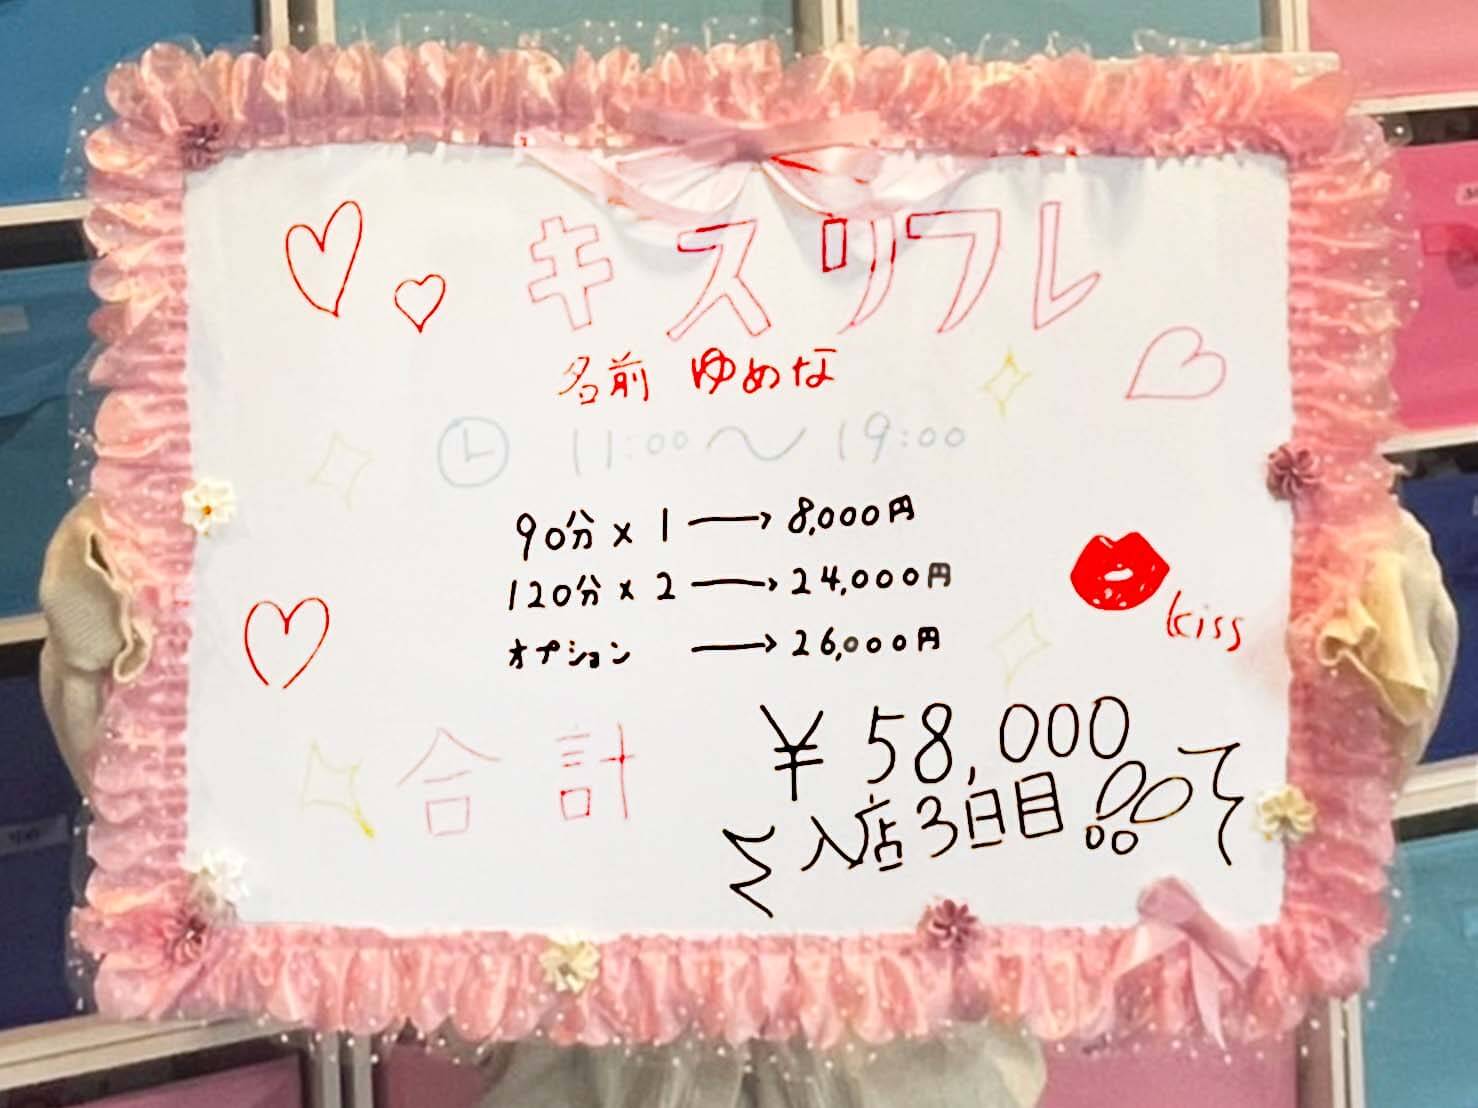 キスリフレ
名前 ゆめな
11:00〜19:00
90分×1→8,000円
120分×2→24,000円
オプション→26,000円
kiss
合計 ¥58,000
入店3日目!!